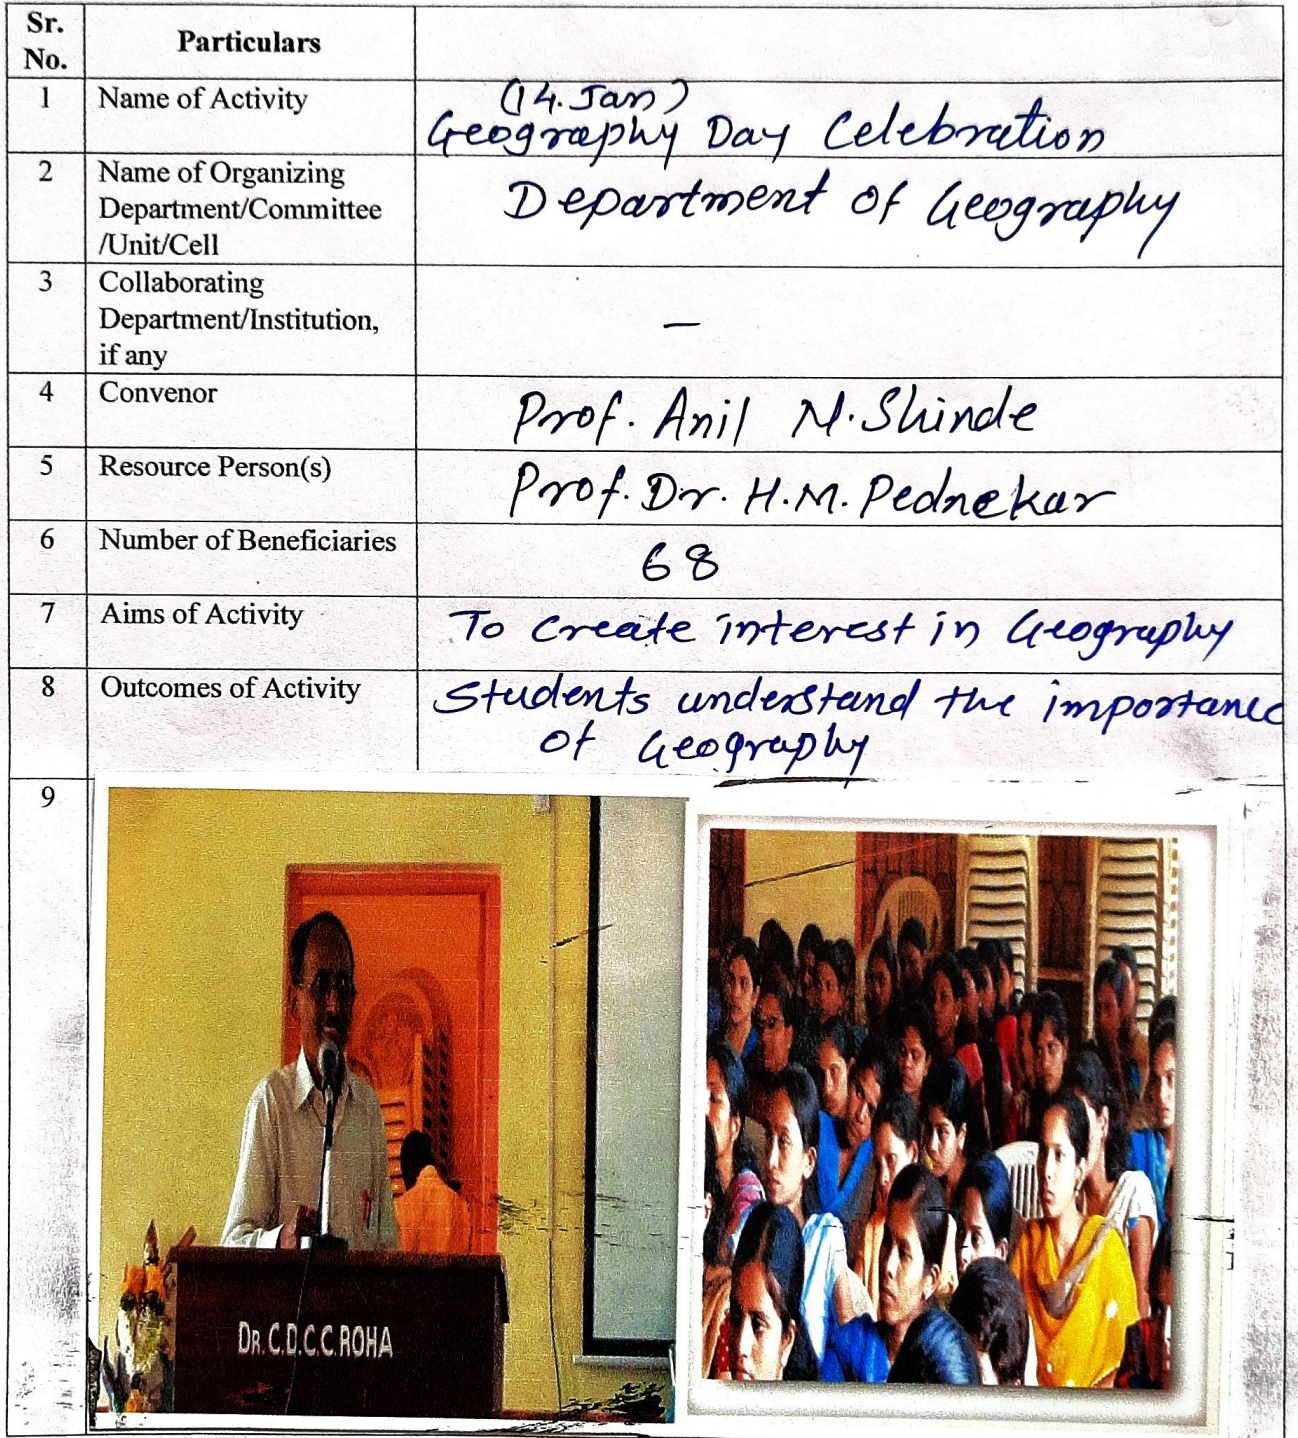 Sr.
No.
Particulars
1 Name of Activity (14. Jan)
Geography Day Celebration
2 Name of Organizing
Department/Committee
/Unit/Cell
Department of Geography
3 Collaborating
Department/Institution,
if any
—
4 Convenor Prof. Anil N. Shinde
5 Resource Person(s) Prof. Dr. H.M. Pednekar
6 Number of Beneficiaries 68
7 Aims of Activity To create interest in Geography
8 Outcomes of Activity Students understand the importance
of Geography
9
DR. C.D.C.C. ROHA